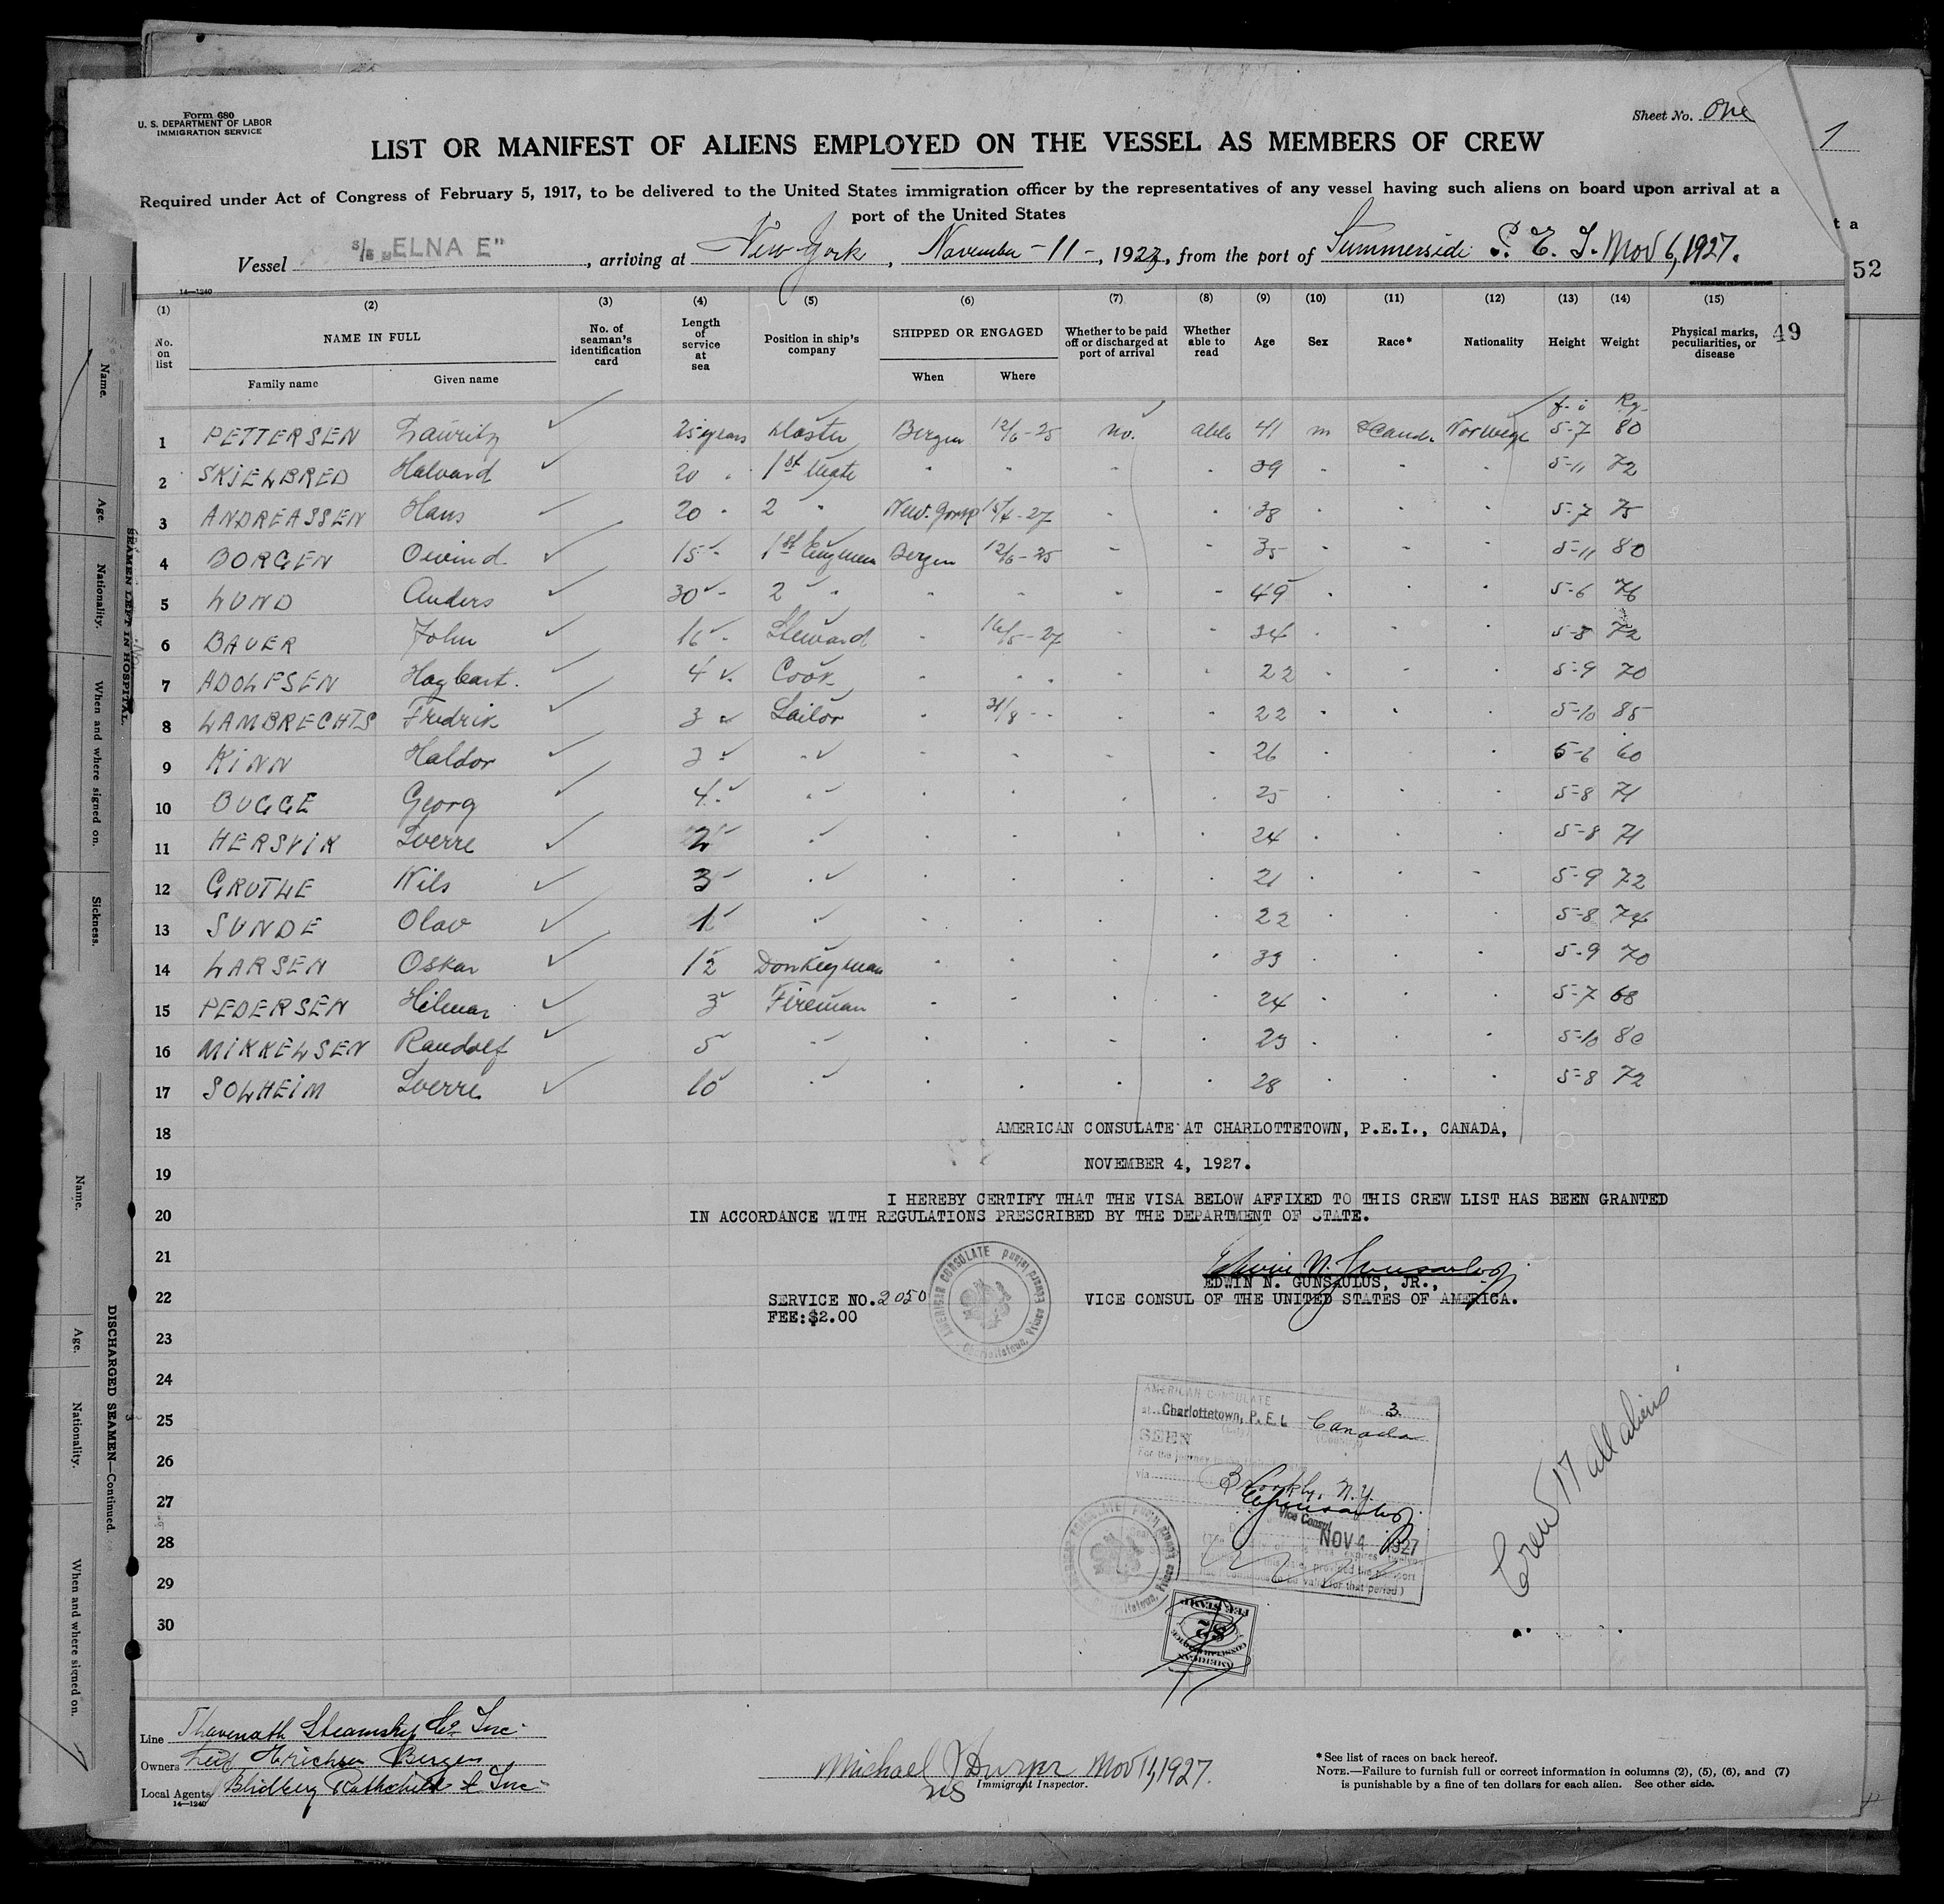 Form 680
U. S. DEPARTMENT OF LABOR
IMMIGRATION SERVICE
Sheet No. One
1
LIST OR MANIFEST OF ALIENS EMPLOYED ON THE VESSEL AS MEMBERS OF CREW
Required under Act of Congress of February 5, 1917, to be delivered to the United States immigration officer by the representatives of any vessel having such aliens on board upon arrival at a
port of the United States
t a
Vessel S/S "ELNA E", arriving at New York, November -11-, 1927, from the port of Summerside P. E. I. Nov 6, 1927.
52
14—1240
(1) (2) (3) (4) (5) (6) (7) (8) (9) (10) (11) (12) (13) (14) (15)
No. on list NAME IN FULL No. of seaman's identification card Length of service at sea Position in ship's company SHIPPED OR ENGAGED Whether to be paid off or discharged at port of arrival Whether able to read Age Sex Race* Nationality Height Weight Physical marks, peculiarities, or disease 49
Family name Given name When Where
f. i Kg.
1 PETTERSEN Lauritz 25 years Master Bergen 12/6-25 No. able 41 m Scand. Norwege 5-7 80
2 SKJELBRED Halvard 20 " 1st Mate " " " " 39 " " " 5-11 72
3 ANDREASSEN Hans 20 " 2 " 15/4-27 " " 38 " " " 5-7 75
4 BORGEN Oivind 15 " 1st Bergen 12/6-25 " " 35 " " " 5-11 80
5 LUND Anders 30 " 2 " " " " " 49 " " " 5-6 76
6 BAUER John 16 " Steward " 16/5-27 " " 34 " " " 5-8 72
7 ADOLFSEN Hagbart. 4 " Cook " " " " " 22 " " " 5-9 70
8 LAMBRECHTS Fredrik 3 " Sailor " 31/8 " " " " 22 " " " 5-10 85
9 KINN Haldor 2 " " " " " " 26 " " " 5-6 60
10 BUGGE Georg 4 " " " " " " 25 " " " 5-8 71
11 HERSVIK Sverre 2 " " " " " 24 " " " 5-8 71
12 GRUTLE Nils 3 " " " " " 21 " " " 5-9 72
13 SUNDE Olav 1 " " " " " 22 " " " 5-8 74
14 LARSEN Oskar 12 Donkeyman " " " " 39 " " " 5-9 70
15 PEDERSEN Hilmar 3 Fireman " " " " 24 " " " 5-7 68
16 MIKKELSEN Randolf 5 " " " " " 29 " " " 5-10 80
17 SOLHEIM Sverre 10 " " " " " 28 " " " 5-8 72
18 AMERICAN CONSULATE AT CHARLOTTETOWN, P.E.I., CANADA,
NOVEMBER 4, 1927.
19
I HEREBY CERTIFY THAT THE VISA BELOW AFFIXED TO THIS CREW LIST HAS BEEN GRANTED
20 IN ACCORDANCE WITH REGULATIONS PRESCRIBED BY THE DEPARTMENT OF STATE.
21
Edwin N. Gunsaulus Jr
EDWIN N. GUNSAULUS, JR.,
22 SERVICE NO. 2050 VICE CONSUL OF THE UNITED STATES OF AMERICA.
FEE: $2.00
AMERICAN CONSULATE Prince Edward Island Charlottetown,
23
24
AMERICAN CONSULATE
No. 3
at Charlottetown, P. E. I. Canada
(City) (Country)
25
SEEN
For the journey to the United States
26
via Brooklyn, N.Y.
27
Vice Consul
NOV 4 1927
28
29
30
AMERICAN CONSULAR SERVICE
$2
FEE STAMP
Crew 17 all aliens
Line Thavenoth Steamship Co Inc.
Owners Bergen
Local Agents Blidberg Rothchild Inc.
14—1240
Michael Nov 11, 1927.
Immigrant Inspector.
* See list of races on back hereof.
NOTE.—Failure to furnish full or correct information in columns (2), (5), (6), and (7)
is punishable by a fine of ten dollars for each alien. See other side.
Name. Age. Nationality. When and where signed on. Sickness.
SEAMEN LEFT IN HOSPITAL
Name. Age. Nationality. When and where signed on.
DISCHARGED SEAMEN—Continued.